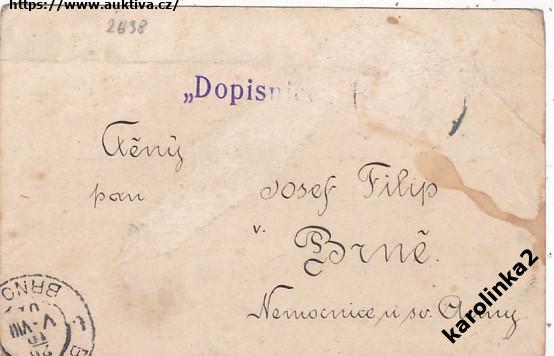 https://www.auktiva.cz/
2638
„Dopisnice
Ctěný
pan Josef Filip
v. Brně.
Nemocnice u sv. Anny.
BRNO
V-VIII
karolinka2